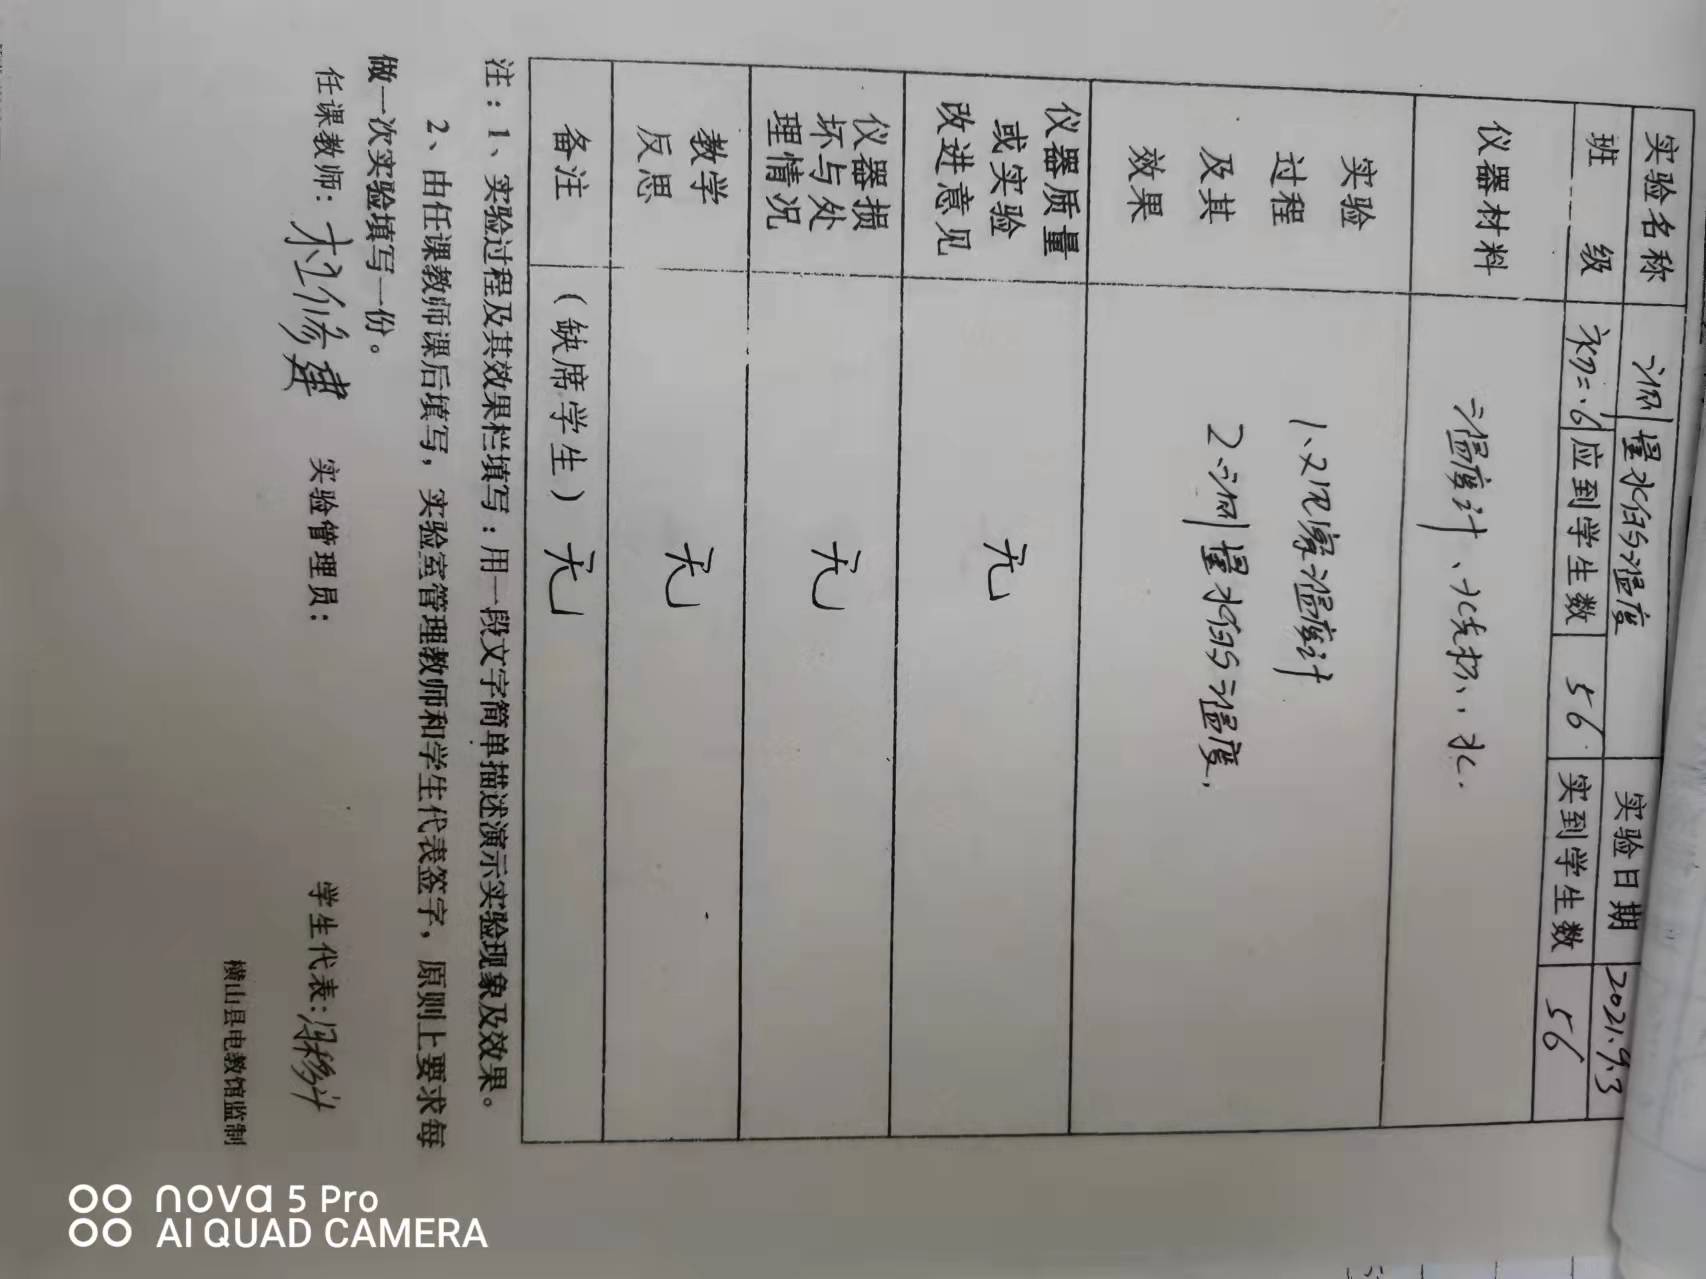 实验名称 测量水的温度 实验日期 2021.9.3
班 级 初二.6 应到学生数 56 实到学生数 56
仪器材料 温度计、烧杯、水.
实验
过程
及其
效果
1.观察温度计
2.测量水的温度,
仪器质量
或实验
改进意见
无
仪器损
坏与处
理情况
无
教学
反思
无
备注 (缺席学生) 无
注:1、实验过程及其效果栏填写:用一段文字简单描述演示实验现象及效果。
2、由任课教师课后填写,实验室管理教师和学生代表签字,原则上要求每
做一次实验填写一份。
任课教师: 杜修建 实验管理员: 学生代表:
横山县电教馆监制
nova 5 Pro
AI QUAD CAMERA